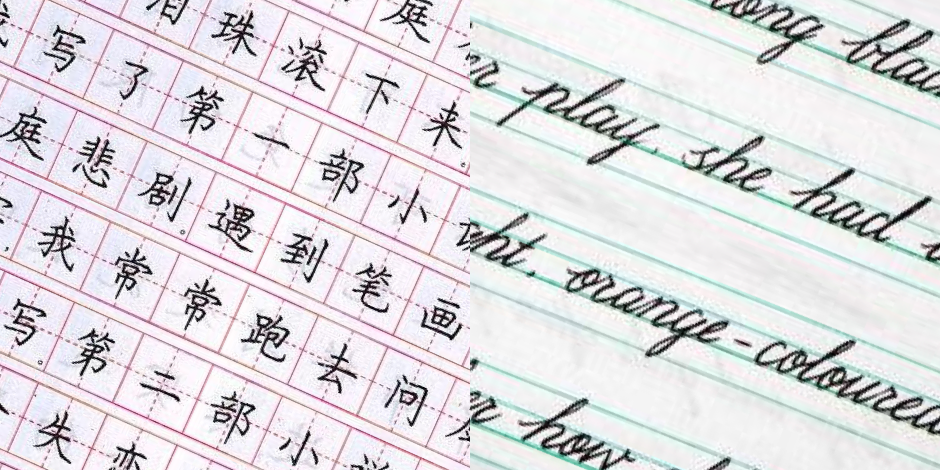 珠 庭
写 了 滚 下 来。
第 一 部 小
庭 悲 剧。 遇 到 笔 画
我 常 常 跑 去 问
写。 第 二 部 小
失
long
play, she had
orange-coloured
how